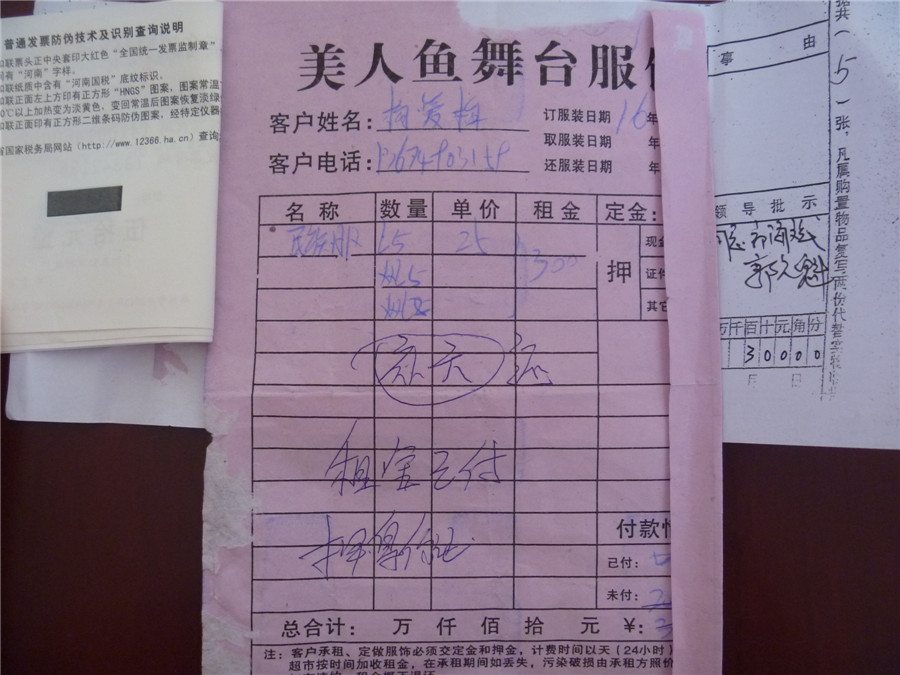 普通发票防伪技术及识别查询说明
联票头正中央套印大红色“全国统一发票监制章”
有“河南”字样。
联纸质中含有“河南国税”底纹标识。
联正面左上方印有正方形“HNGS”图案，图案常温
℃以上加热变为淡黄色，变回常温后图案恢复淡绿
联正面印有正方形二维条码防伪图案，经特定仪器
省国家税务局网站（http://www.12366.ha.cn）查询
美人鱼舞台服
客户姓名：
订服装日期 16年
取服装日期 年
客户电话：
还服装日期 年
名称 数量 单价 租金 定金：
民族服 15 25 300
押
现金
证件
其它
租金已付
付款情
已付：
未付：
总合计： 万 仟 佰 拾 元 ￥：
注：客户承租、定做服饰必须交定金和押金，计费时间以天（24小时）
超市按时间加收租金，在承租期间如丢失，污染破损由承租方照价
事由
据共（5）张，凡属购置物品复写两份代替
领导批示
万千百十元角分
30000